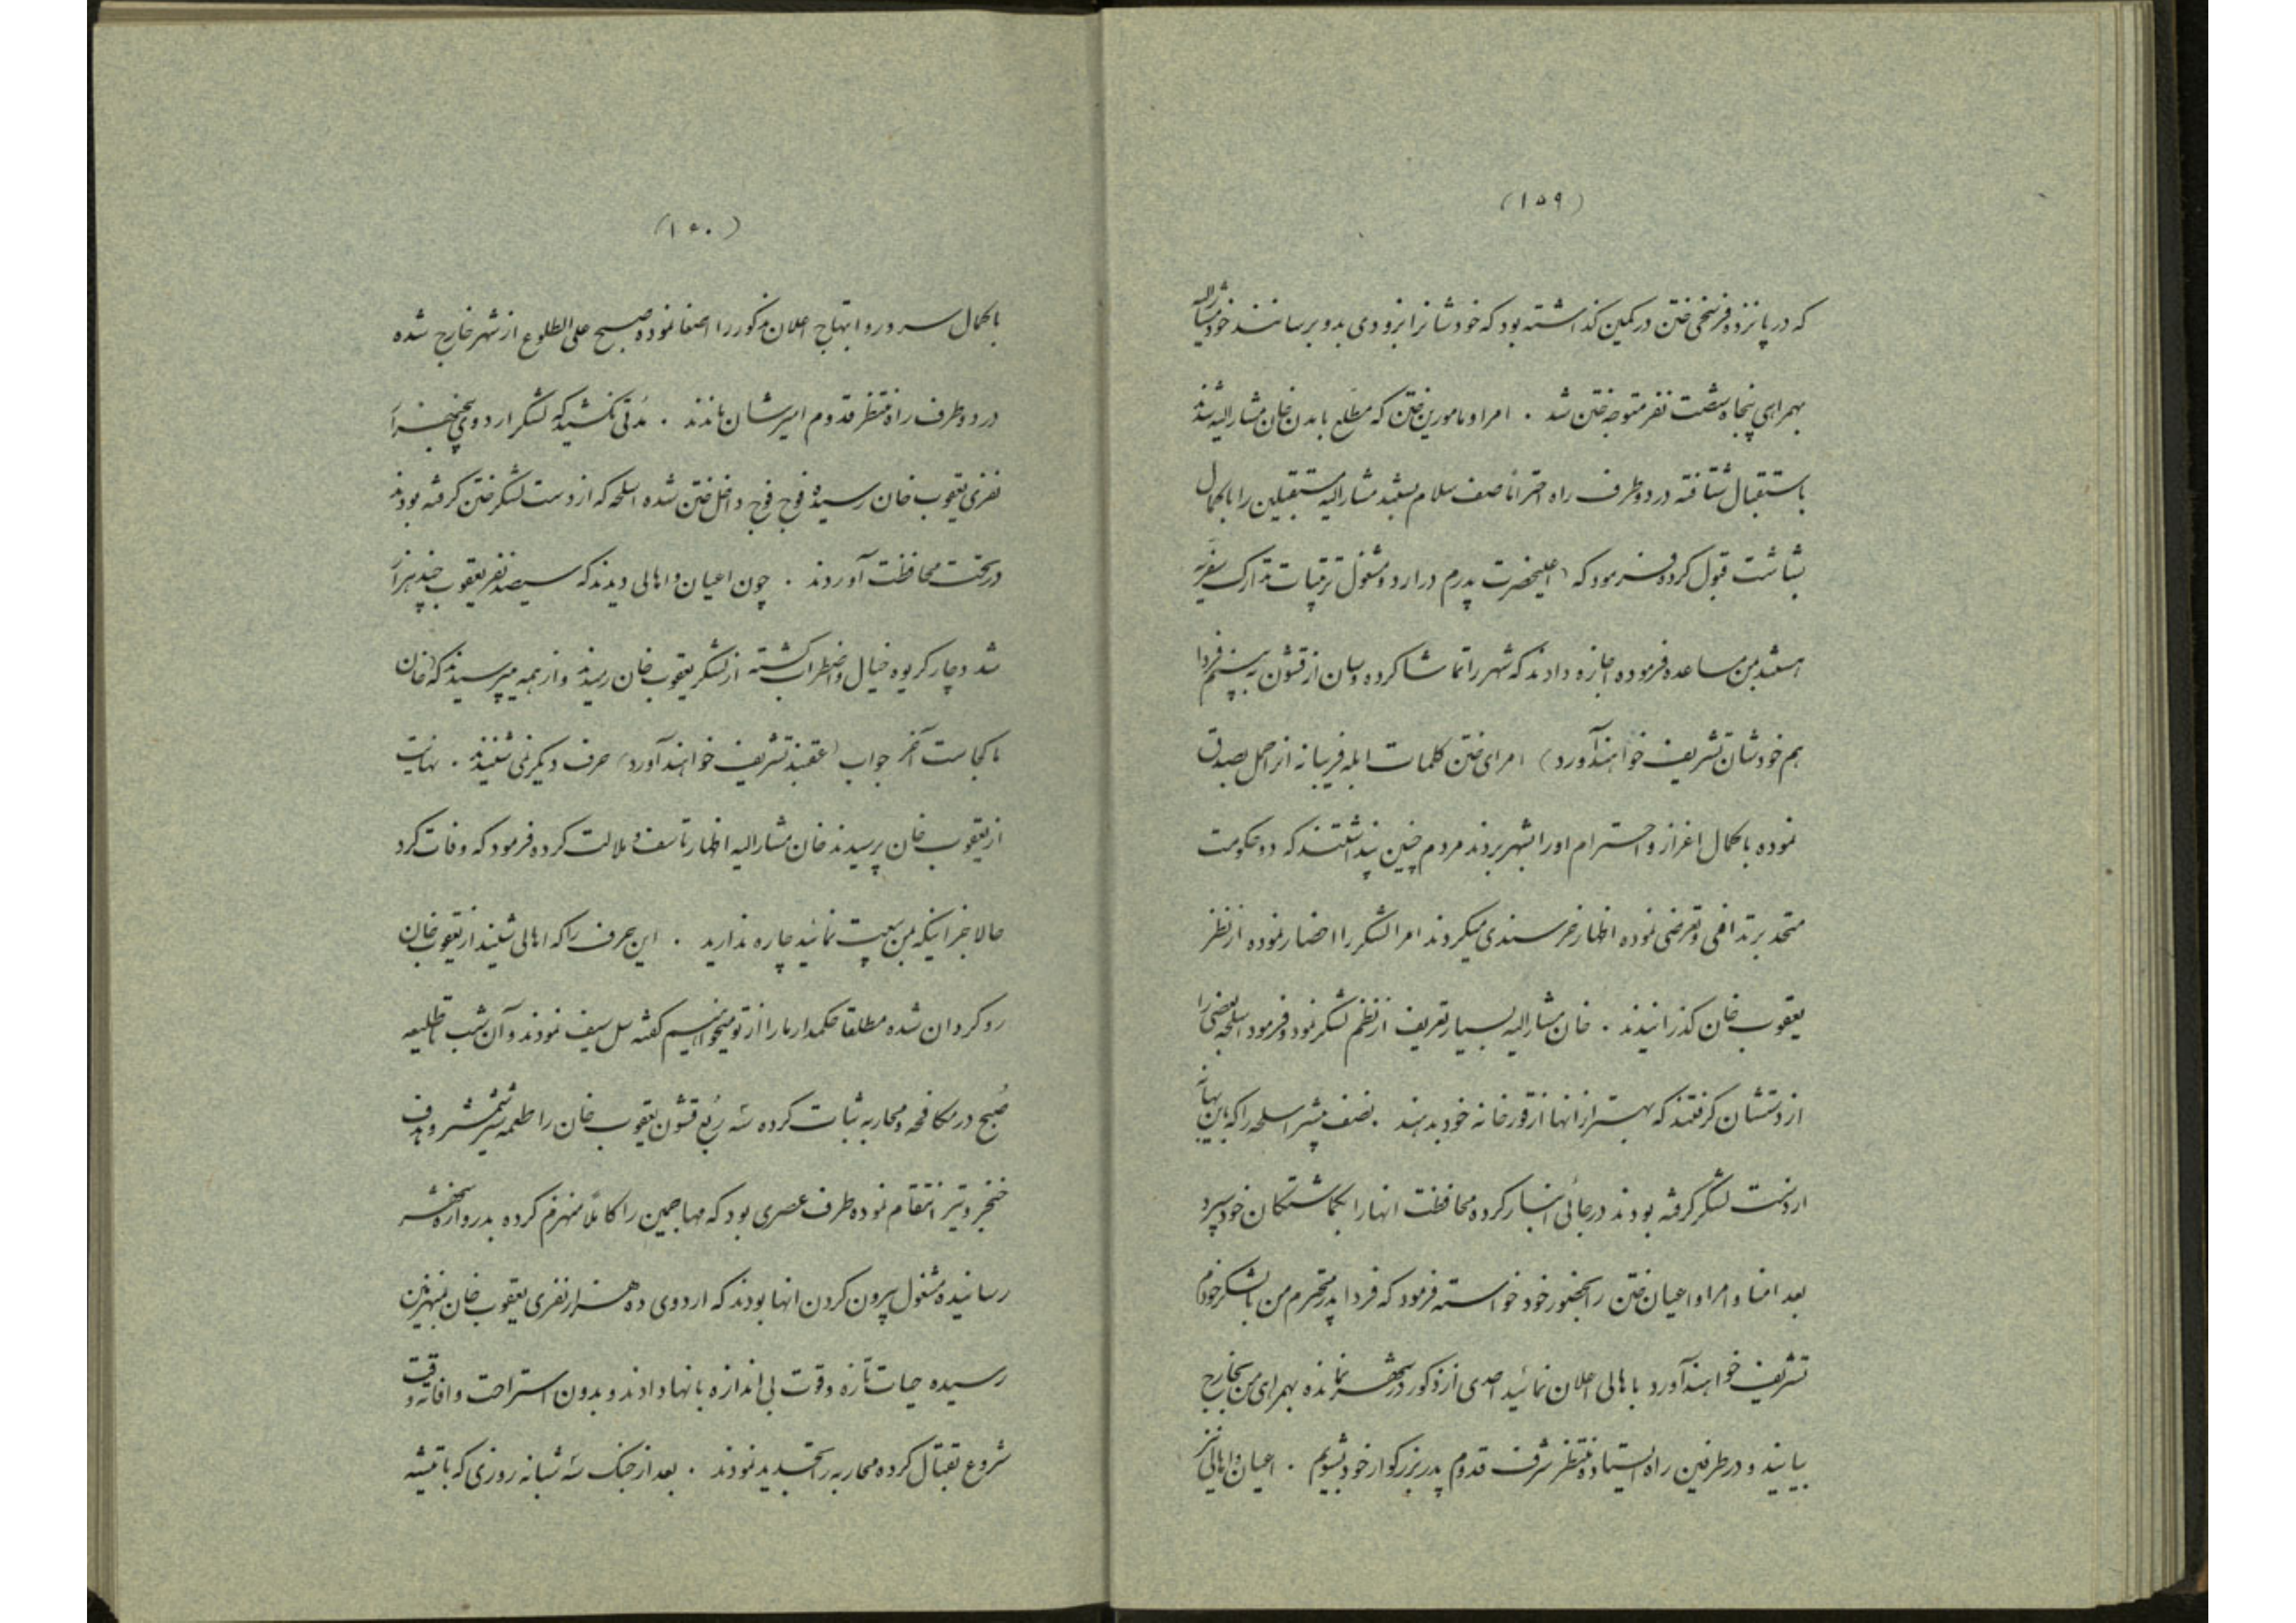 (۱۵۹)
که در پانزده فرسخی ختن در کمین گذاشته بود که خودشانرا بزودی بدو برسانند خود مشارالیه
بهمراهی پنجاه شصت نفر متوجه ختن شد . امرا و مامورین ختن که مطلع بامدن خان مشارالیه شدند
باستقبال شتافته در دو طرف راه احتراما صف سلام بستند مشارالیه مستقبلین را بکمال
بشاشت قبول کرده فرمود که (اعلیحضرت پدرم در اردو مشغول ترتیبات تدارک سفریه
هستند بمن مساعده فرموده اجازه دادند که شهر را تماشا کرده و سان از قشون به بینم فردا
هم خودشان تشریف خواهند آورد) امرای ختن کلمات ابله فریبانه انرا حمل بصدق
نموده با کمال اعزاز و احترام او را بشهر بردند مردم چنین پنداشتند که دو حکومت
متحد بر تدافعی و تعرضی نموده اظهار خرسندی میکردند امرا لشکر را احضار نموده از نظر
یعقوب خان گذرانیدند . خان مشارالیه بسیار تعریف از نظم لشکر نمود و فرمود اسلحه بعضی را
از دستشان گرفتند که بهتر از انها از قورخانه خود بدهند . نصف بیشتر اسلحه را که باین بهانه
از دست لشکر گرفته بودند در جائی انبار کرده محافظت انها را بگماشتگان خود سپرد
بعد امنا و امرا و اعیان ختن را بحضور خود خواسته فرمود که فردا پدر محترم من با لشکر خودم
تشریف خواهند آورد باهالی اعلان نمائید احدی از ذکور در شهر نمانده بهمراهی من بخارج
بیایند و در طرفین راه ایستاده منتظر شرف قدوم پدر بزرگوار خود بشویم . اعیان و اهالی نیز
(۱۶۰)
با کمال سرور و ابتهاج اعلان مذکور را اصغا نموده صبح علی الطلوع از شهر خارج شده
در دو طرف راه منتظر قدوم امیرشان ماندند . مدتی نکشید که لشکر اردوی پنجهزار
نفری یعقوب خان رسیده فوج فوج داخل ختن شده اسلحه که از دست لشکر ختن گرفته بودند
در تحت محافظت آوردند . چون اعیان و اهالی دیدند که سیصد نفر یعقوب چند هزار
شد دچار گریوه خیال و اضطراب گشته از لشکر یعقوب خان رمیدند و از همه میپرسیدند که (خان
ما کجاست) آخر جواب (عقبند تشریف خواهند آورد) حرف دیگر نمی شنیدند . نهایت
از یعقوب خان پرسیدند خان مشارالیه اظهار تاسف و ملالت کرده فرمود که وفات کرد
حالا جز اینکه بمن بیعت نمائید چاره ندارید . این حرف را که اهالی شنیدند از یعقوب خان
رو گردان شده مطلقا حکمدار ما را از تو میخواهیم گفته سل سیف نمودند و آن شب تا طلیعه
صبح در مکافحه و محاربه ثبات کرده سه ربع قشون یعقوب خان را طعمه شمشیر و هدف
خنجر و تیر انتقام نموده طرف عصری بود که مهاجمین را کاملا منهزم کرده بدروازه شهر
رسانیده مشغول بیرون کردن انها بودند که اردوی ده هزار نفری یعقوب خان بمنهزمین
رسیده حیات تازه و قوت بی اندازه بانها دادند و بدون استراحت و افاته وقت
شروع بقتال کرده محاربه را تجدید نمودند . بعد از جنگ سه شبانه روزی که با تیشه